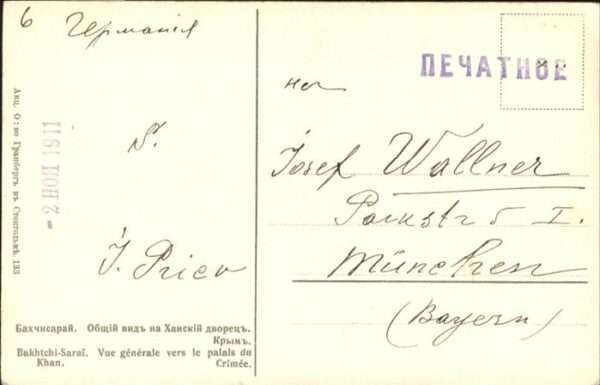 6
Германія
ПЕЧАТНОЕ
S.
- 2 НОЯ 1911
Josef Wallner
Parkstr 5 I.
München
(Bayern)
Акц. О:во Гранбергъ въ Стокгольмѣ, 133
Бахчисарай. Общій видъ на Ханскій дворецъ.
Крымъ.
Bakhtchi-Saraï. Vue générale vers le palais du
Khan. Crimée.